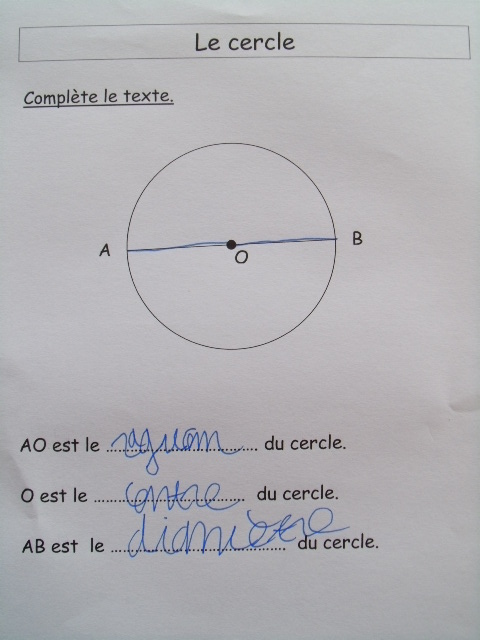 Le cercle
Complète le texte.
A
B
O
AO est le rayon du cercle.
O est le centre du cercle.
AB est le diamètre du cercle.